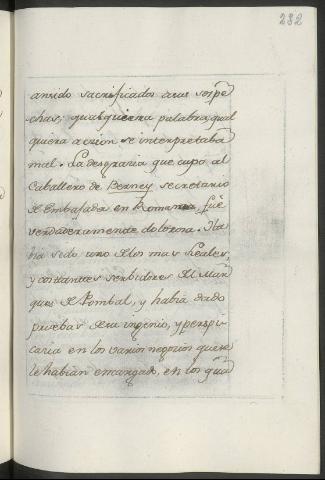 232
an sido sacrificados a sus sospe
chas; qualquiera palabra, qual
quiera accion se interpretaba
mal. La desgracia que cupo al
Caballero de Berney secretario
de Embajada en Roma fuè
verdaderamente dolorosa. Ha
bia sido uno de los mas Leales,
y constantes serbidores del Mar
ques de Pombal, y habia dado
pruebas de su ingenio, y perspi
cacia en los varios negocios que se
le habian encargado, en los qua